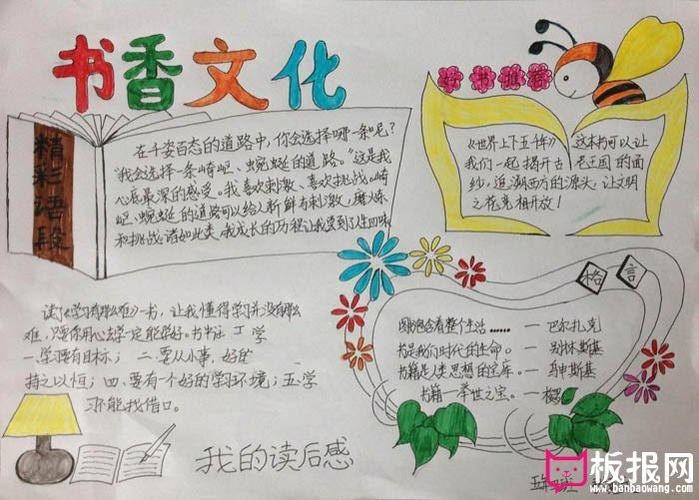 书香文化
好书推荐
精彩语段
在千姿百态的道路中,你会选择哪一条呢?
"我会选择一条崎岖、蜿蜒的道路。"这是我
心底最深的感受。我喜欢刺激、喜欢挑战。崎
岖、蜿蜒的道路可以给人新鲜、刺激,磨炼
和挑战。诸如此类,我成长的历程让我尝到了人生回味
《世界上下五千年》这本书可以让
我们一起揭开古老王国的面
纱,追溯西方的源头,让文明
之花竞相开放!
格言
读了《学习有那么难》一书,让我懂得学习并没有那么
难,只要你用心去学一定能学好。书中
学
一.学习要有目标;二.要从小事,好的
持之以恒;四.要有一个好的学习环境;五.学
习不能找借口。
我的读后感
包含着整个生活……——巴尔扎克
书是我们时代的生命。——别林斯基
书籍是人类思想的宝库。——乌申斯基
书籍——举世之宝。——梭罗
板报网
www.banbaowang.com